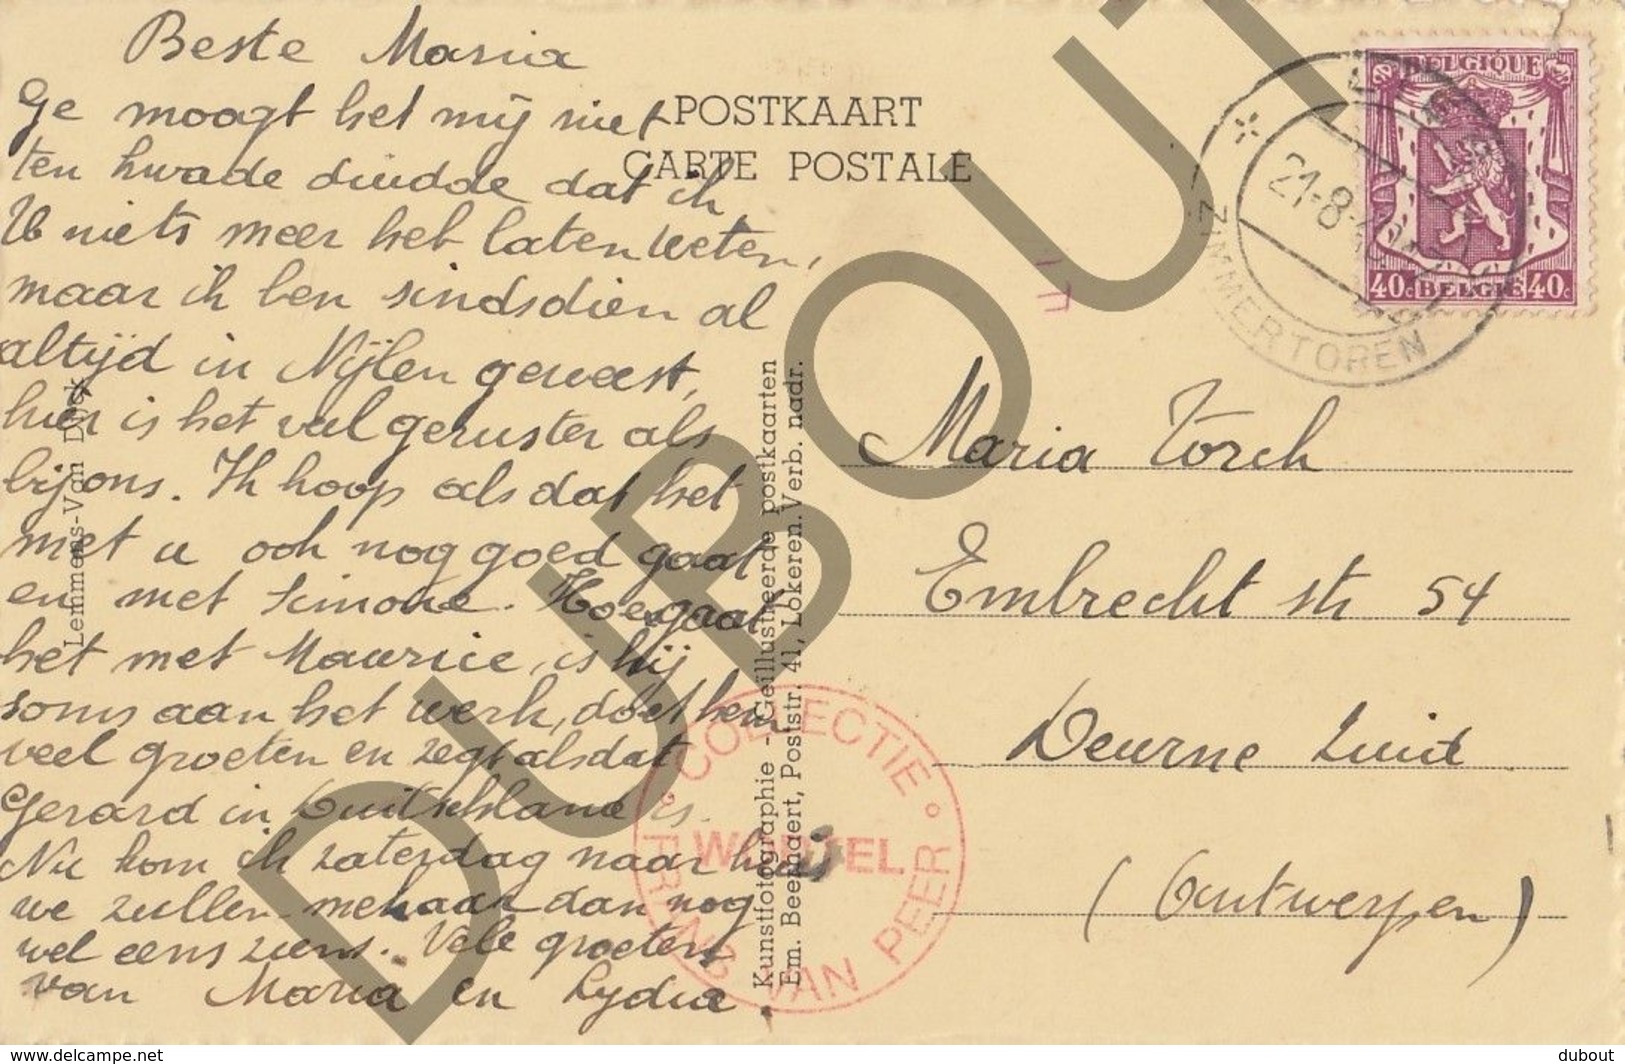 Beste Maria
Ge moogt het mij niet
ten kwade duidde dat ik
U niets meer heb laten weten,
maar ik ben sindsdien al
altijd in Nijlen geweest,
hier is het wel geruster als
bij ons. Ik hoop als dat het
met u ook nog goed gaat
en met Simone. Hoe gaat
het met Maurice, is hij
soms aan het werk, doet hem
veel groeten en zegt als dat
Gerard in Duitschland is.
Nu kom ik zaterdag naar huis
we zullen mekaar dan nog
wel eens ziens. Vele groeten
van Maria en Lydia.
POSTKAART
CARTE POSTALE
Lemmens-Van Dijck
Kunstfotographie - Geïllustreerde postkaarten
Em. Beernaert, Poststr. 41, Lokeren. Verb. nadr.
BELGIQUE
40c BELGIË 40c
21-8-
ZIMMERTOREN
Maria Torck
Embrecht str 54
Deurne Zuid
(Antwerpen)
COLLECTIE
WORTEL
FRANS VAN PEER
DUBOUT
https://www.delcampe.net
dubout